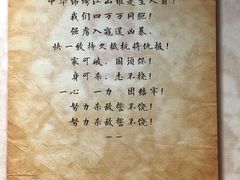 中华锦绣江山谁是主人翁!
我们四万万同胞!
强虏入寇逞凶暴,
快一致持久抵抗将仇报!
家可破,国须保!
身可杀,志不挠!
一心 一力 团结牢!
努力杀敌誓不饶!
努力杀敌誓不饶!